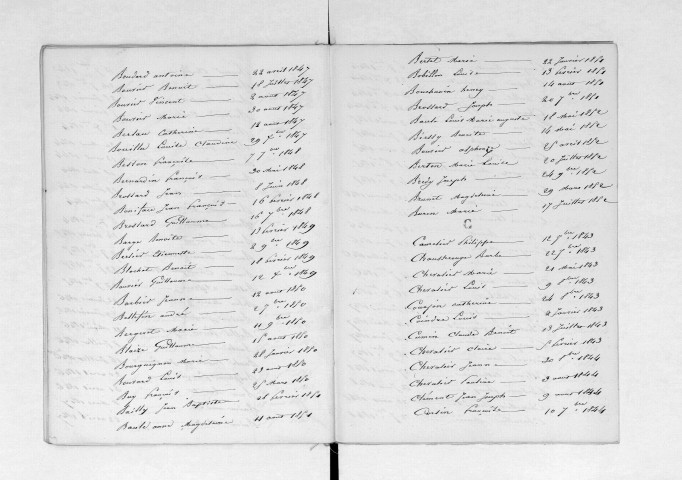 Boudard antoine 22 avril 1847
Bouvier Benoit 18 Juillet 1847
Bouvier Vincent 2 aout 1847
Bouvier Marie 30 aout 1847
Bertau Catherine 14 aout 1847
Bouilla Louise Claudine 29 X.bre 1847
Besson françoise 7 7.bre 1848
Bernardin françois 30 Mai 1848
Brossard Jean 8 Juin 1848
Boniface Jean François 16 février 1848
Brossard Guillaume 16 7.bre 1848
Barge Benoite 13 février 1849
Berlier Etiennette 2 9.bre 1849
Blachet Benoit 18 février 1849
Bouvier Guillaume 12 X.bre 1849
Barbier Jeanne 12 aout 1850
Ballefin andré 2 7.bre 1850
Berguet Marie 11 9.bre 1850
Blaize Guillaume 15 aout 1850
Bourguignon Marie 28 Janvier 1850
Boussard Louis 23 aout 1850
Buy françois 25 Mars 1850
Bailly Jean Baptiste 28 février 1850
Baule anne Magdeleine 11 aout 1850
Bertet Marie 22 Janvier 1850
Robillon Louise 13 février 1850
Bouchacour henry 14 aout 1850
Brossard Joseph 20 7.bre 1850
Baule Louis Marie auguste 18 Mai 1852
Biessy Benoite 14 Mai 1852
Bouvier alphonse 25 avril 1852
Berton Marie Louise 20 Juillet 1852
Brédy Joseph 24 9.bre 1852
Benoit Magdeleine 29 Mars 1852
Buron Marie 17 Juillet 1852
C
Cavelier Philippe 12 7.bre 1843
Chevalier Marie 21 Mars 1843
Chevalier Louis 9 8.bre 1843
Couzon catherine 24 8.bre 1843
Coindre Louis 4 Janvier 1843
Cumin Claude Benoit 13 Juillet 1843
Chevalier claire 5 février 1843
Chevalier Jeanne 30 8.bre 1844
Chevalier Pauline 3 aout 1844
Clément Jean Joseph 9 aout 1844
françoise 10 7.bre 1844